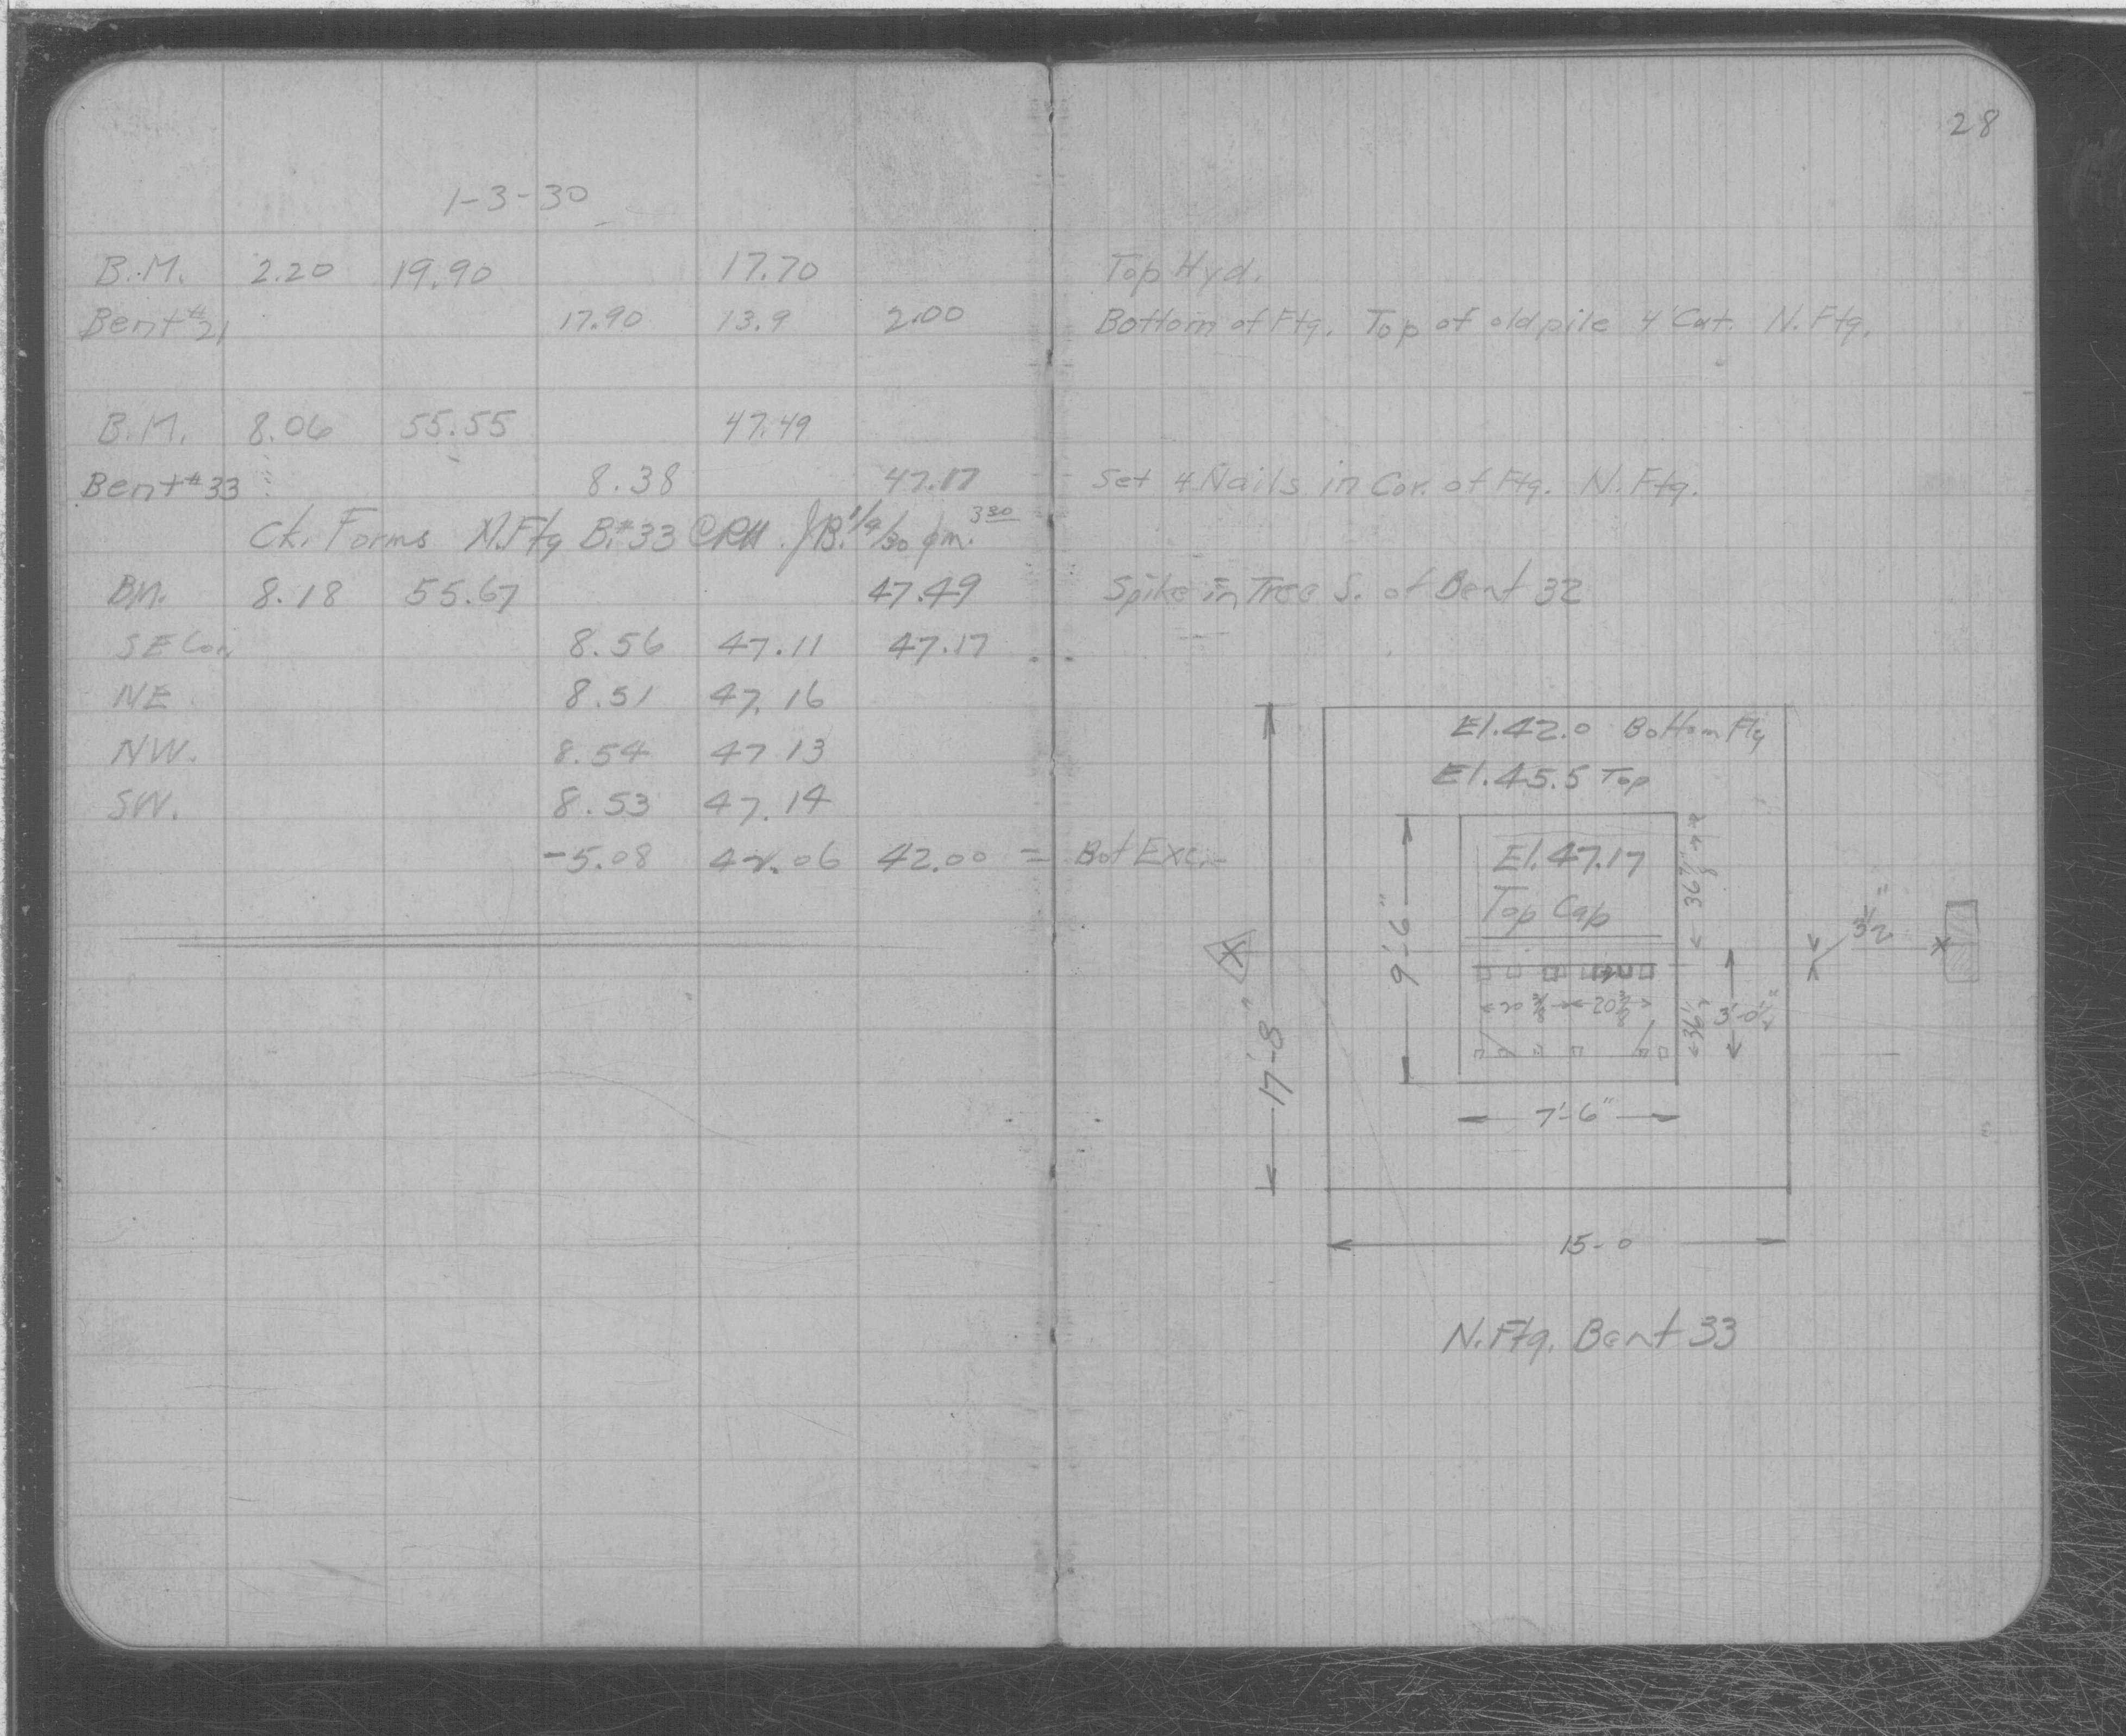 28
1-3-30
B.M. 2.20 19.90 17.70 Top Hyd.
Bent #21 17.90 13.9 2.00 Bottom of Ftg. Top of old pile 4' Cut. N. Ftg.
B.M. 8.06 55.55 47.49
Bent #33 8.38 47.17 Set 4 Nails in Cor. of Ftg. N. Ftg.
Ck. Forms N. Ftg B.#33 1/4/30 pm. 3 30
BM. 8.18 55.67 47.49 Spike in Tree S. of Bent 32
SE Cor. 8.56 47.11 47.17
NE 8.51 47.16
NW. 8.54 47.13
SW. 8.53 47.14
-5.08 42.06 42.00 = Bot Exc.
El. 42.0 Bottom Ftg
El. 45.5 Top
El. 47.17
Top Cap
9'-6"
3 1/2"
20 3/8 20 3/8
3'-0 1/2"
17'-8"
7'-6"
15-0
N. Ftg. Bent 33